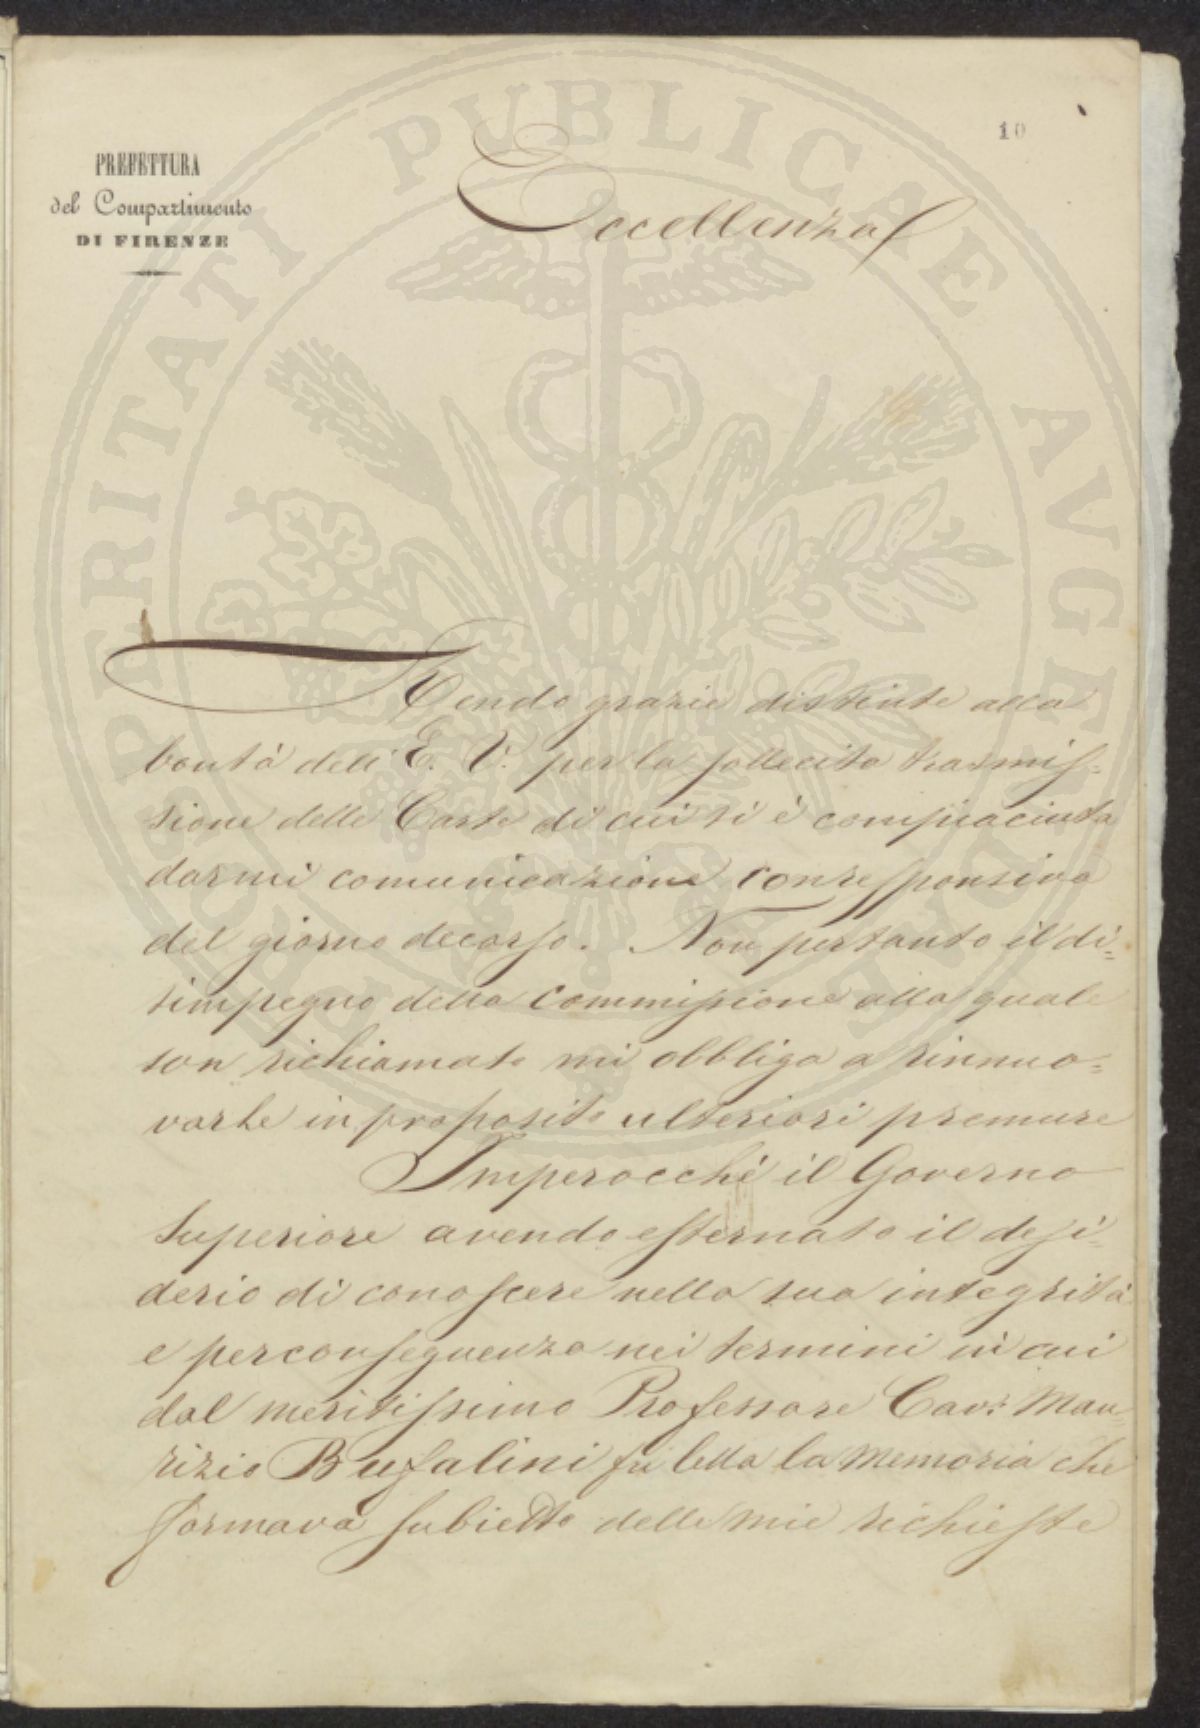 10
PREFETTURA
del Compartimento
DI FIRENZE
Eccellenza
Rendo grazie distinte alla
bontà dell'E. V. per la sollecita trasmis=
sione delle Carte di cui si è compiaciuta
darmi comunicazione con responsiva
del giorno decorso. Non pertanto il di=
simpegno della commissione alla quale
son richiamato mi obbliga a rinnuo=
varLe in proposito ulteriori premure
Imperocchè il Governo
Superiore avendo esternato il desi=
derio di conoscere nella sua integrità
e per conseguenza nei termini in cui
dal meritissimo Professore Cav. Mau=
rizio Bufalini fu letta la Memoria che
formava subietto delle mie richieste
PROSPERITATI PUBLICAE AVGENDAE